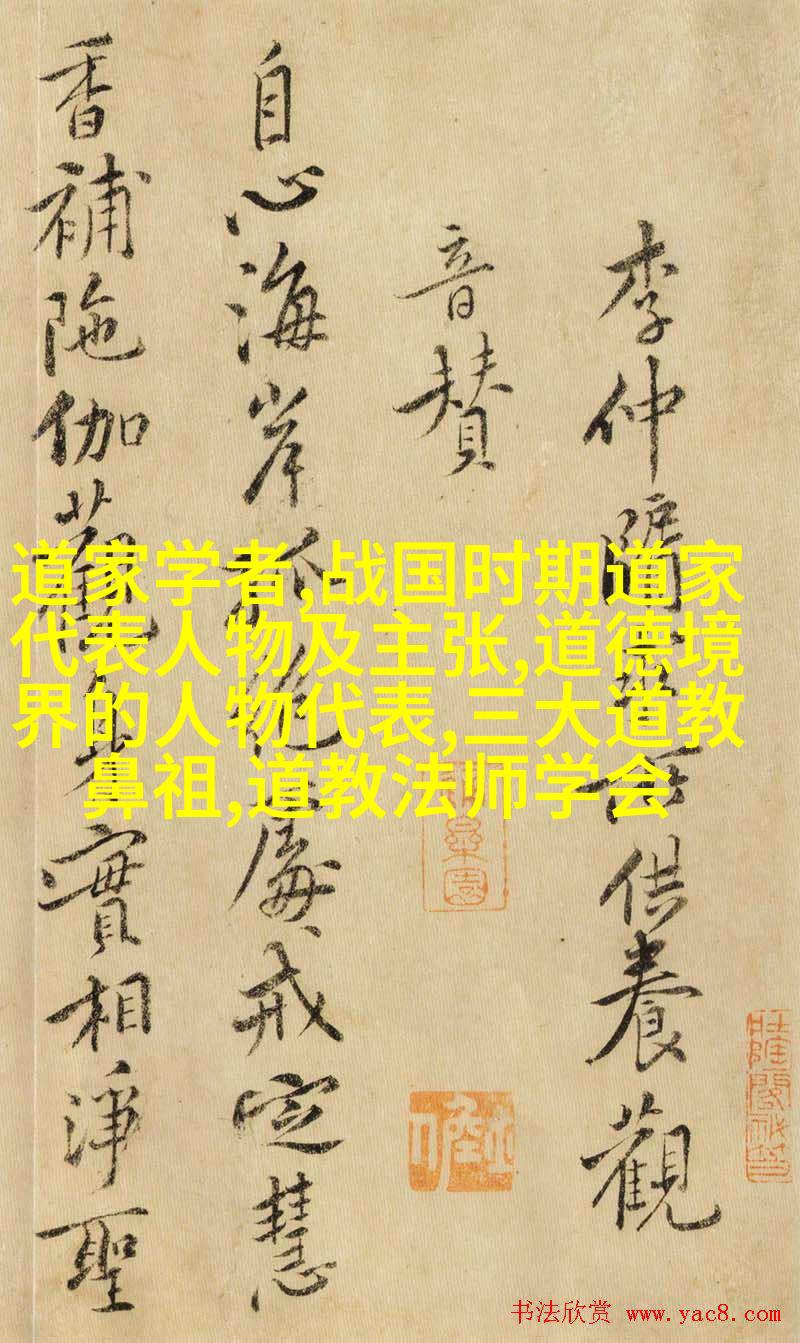 李仲牖寄供養觀
音賛
自心海岸孤絶處戒定慧
香補陁伽觀身實相淨聖
道家学者,战国时期道家
代表人物及主张,道德境
界的人物代表,三大道教
鼻祖,道教法师学会
书法欣赏 www.yac8.com